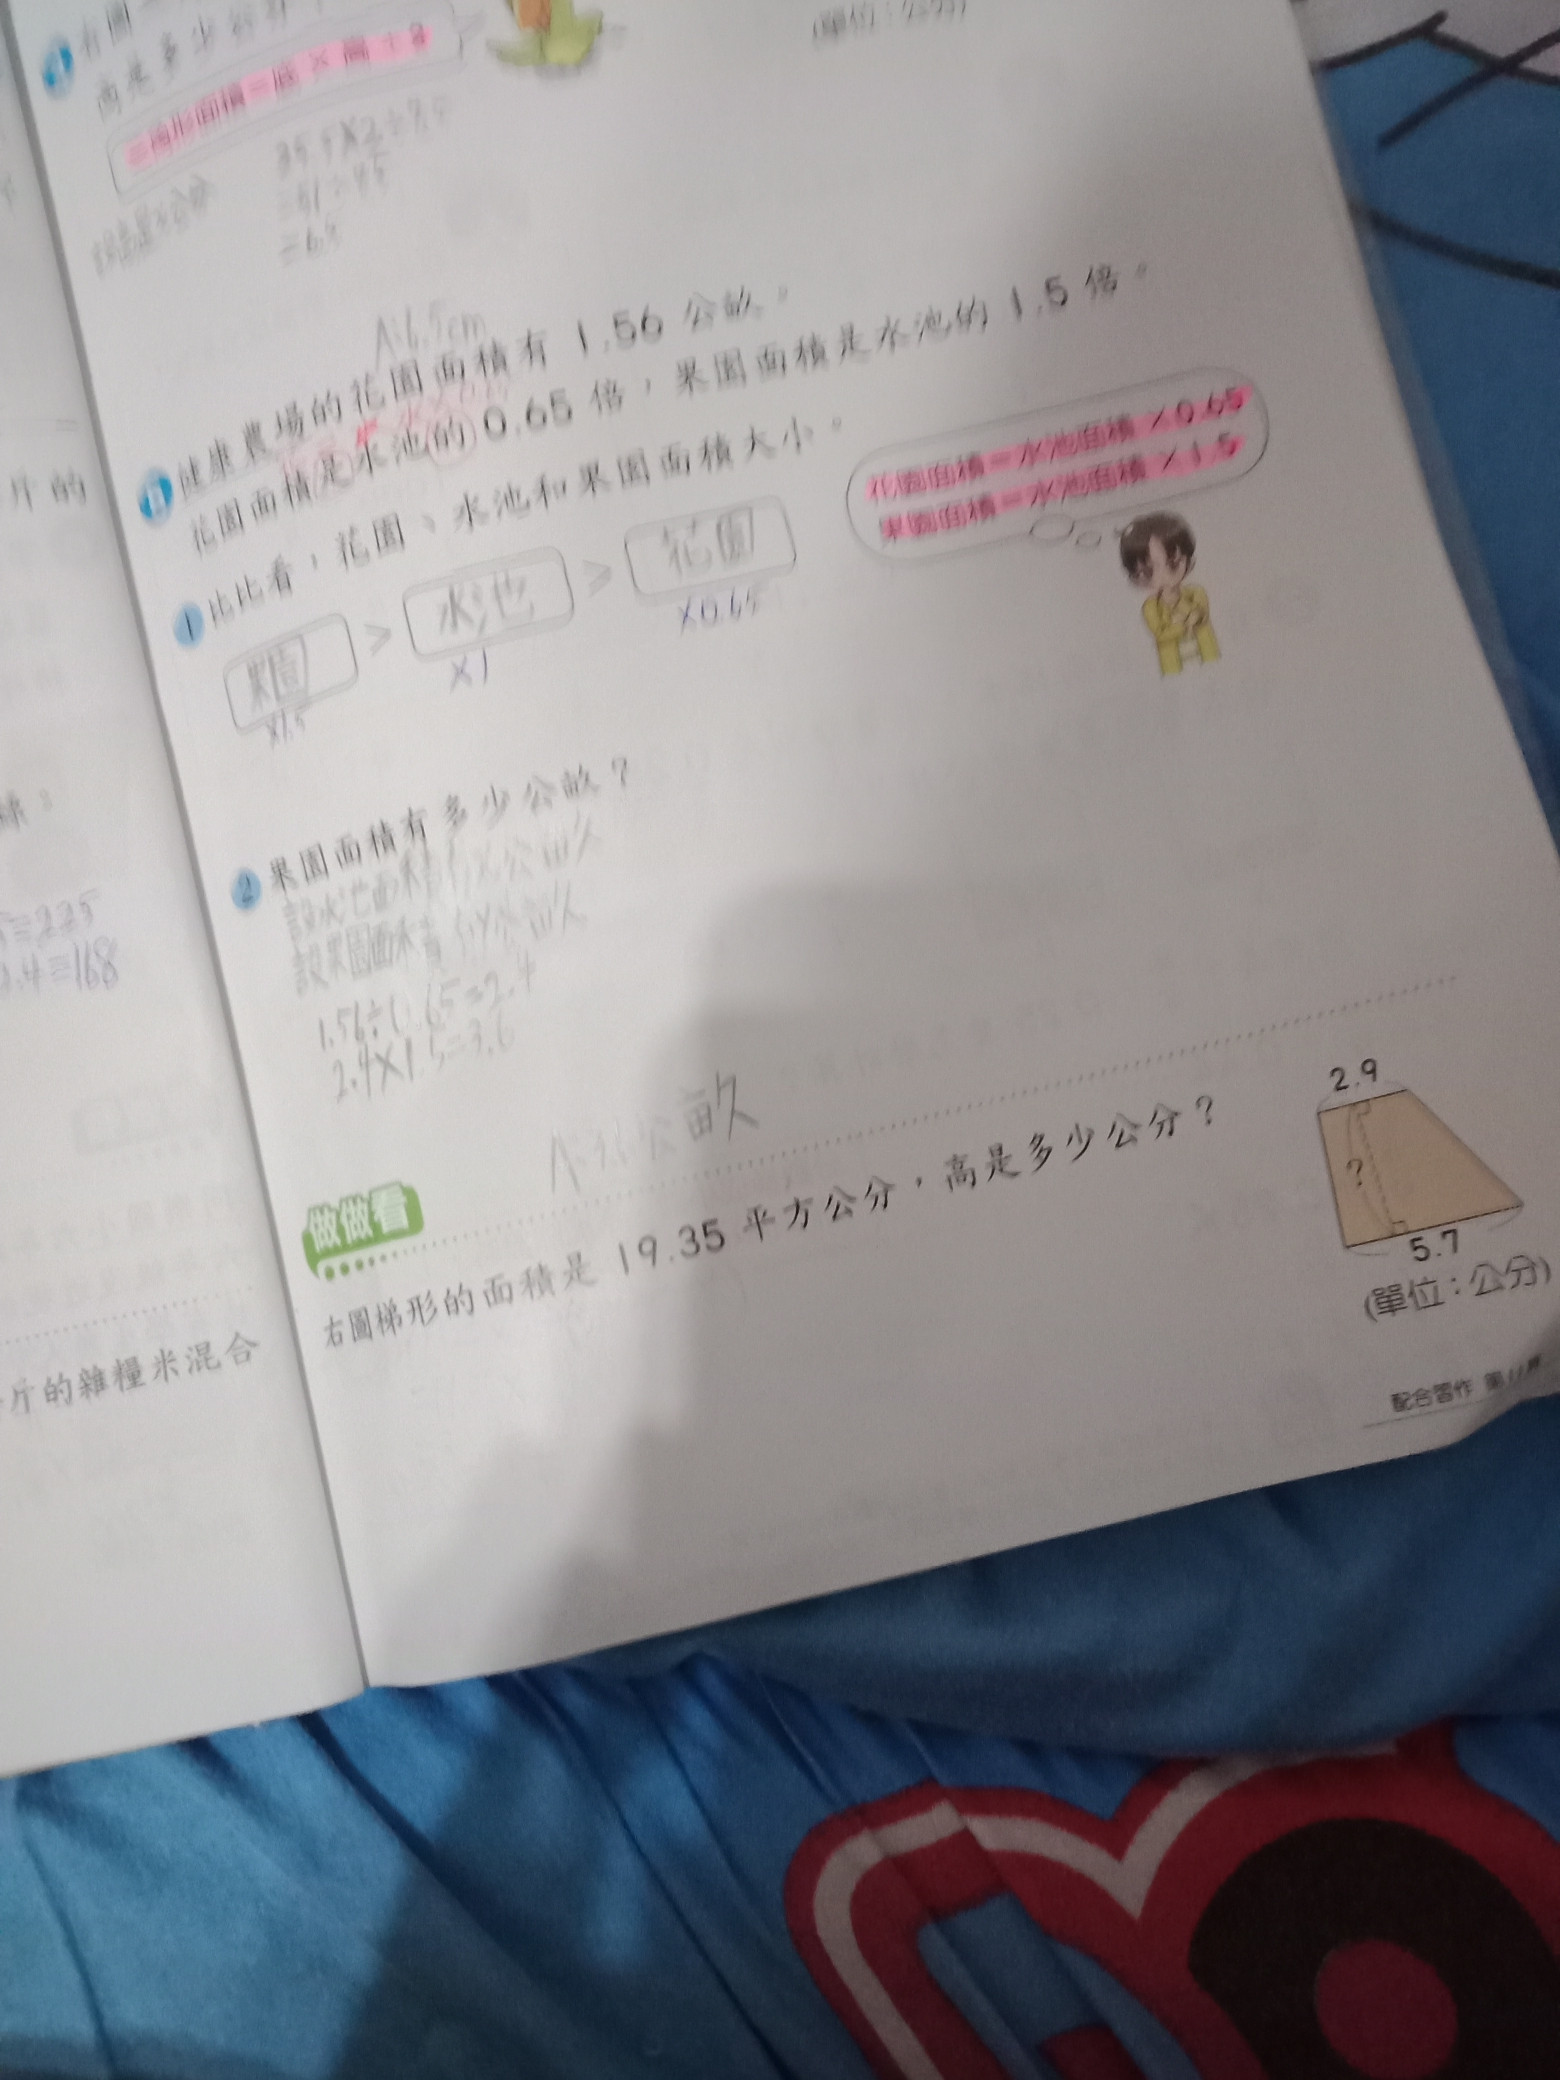 右圖
高是多少公分?
(單位:公分)
三角形面積=底×高÷2
=6.5
A:6.5cm
健康農場的花園面積有 1.56 公畝。
花園面積是水池的 0.65 倍,果園面積是水池的 1.5 倍。
1 比比看,花園、水池和果園面積大小。
果園 > 水池 > 花園
×1.5 ×1 ×0.65
花園面積=水池面積×0.65
果園面積=水池面積×1.5
2 果園面積有多少公畝?
設水池面積有x公畝
設果園面積有y公畝
1.56÷0.65=2.4
2.4×1.5=3.6
A:3.6公畝
做做看
右圖梯形的面積是 19.35 平方公分,高是多少公分?
2.9
?
5.7
(單位:公分)
配合習作 第11頁
斤的
=225
.4=168
斤的雜糧米混合